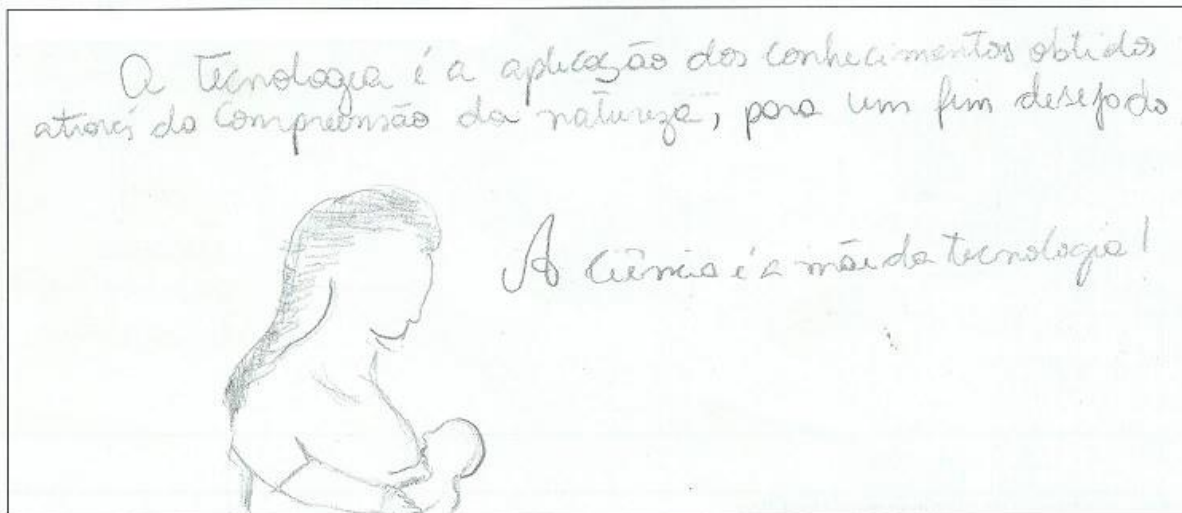 A tecnologia é a aplicação dos conhecimentos obtidos
através da compreensão da natureza, para um fim desejado.
A ciência é a mãe da tecnologia!